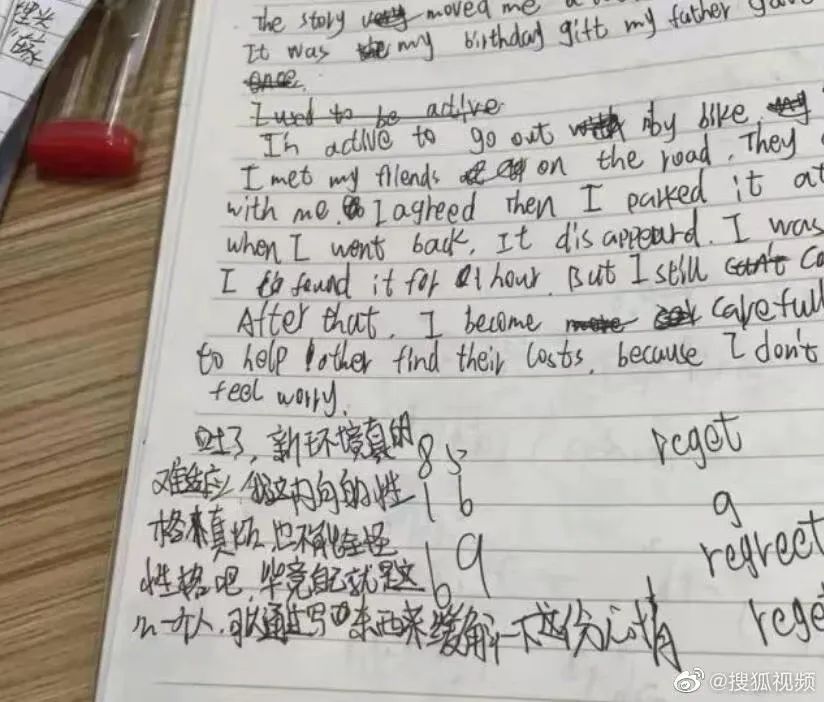 the story moved me a
It was my birthday gift my father gave
once.
I used to be active
I'm active to go out by bike.
I met my filends on the road. They
with me. I agreed then I parked it at
when I went back, It disappeard. I was
I found it for 1 hour. But I still can't
After that. I become more carefull
to help other find their losts, because I don't
feel worry.
对了，新环境真的
难适应，我这内向的性
格来真坏，也不能全怪
性格吧，毕竟自己就是这
么一个人，可以通过写东西来缓解一下这份心情
85
16
69
reget
g
regrect
rege
@搜狐视频